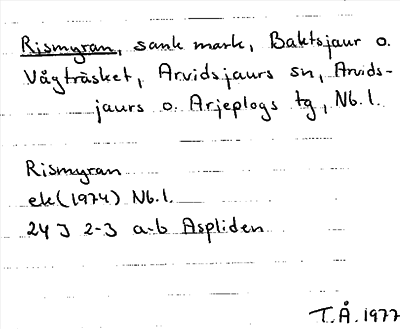 Rismyran, sank mark, Baktsjaur o.
Vågträsket, Arvidsjaurs sn, Arvids-
jaurs o. Arjeplogs tg, Nb.l.
Rismyran
ek (1974) Nb.l.
24 J 2-3 a-b Aspliden
T.Å. 1977